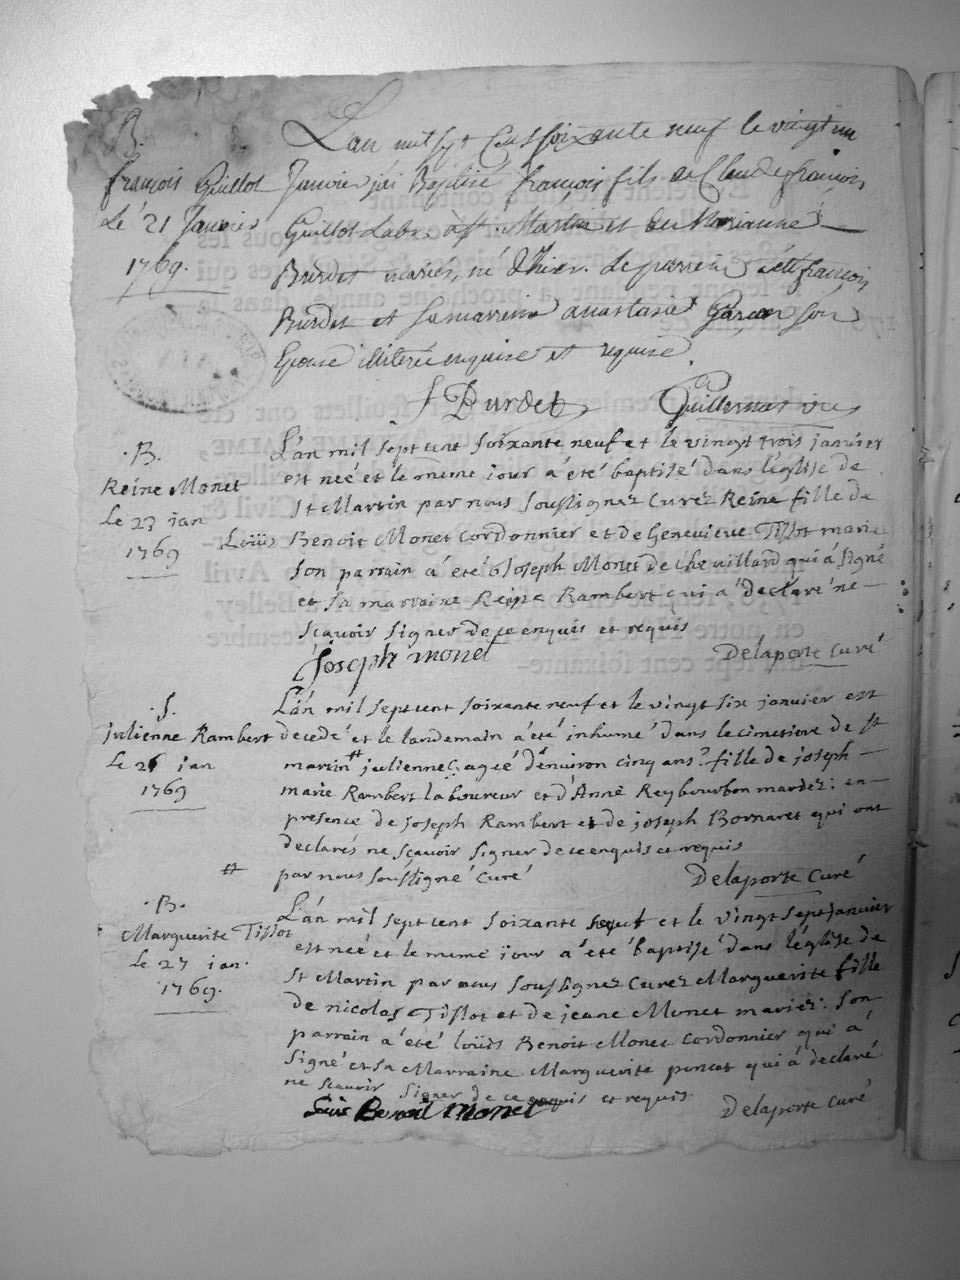 B.
françois Guillot
Le 21 Janvier
1769.
L'an mil sept Cens soixante neuf le vingt un
Janvier jai Baptisé françois fils de Claude françois
Guillot Labr. a st. Martin et de Marianne
Burdet mariés, né d'hier. Le parrein a été françois
Burdet et sa marreine anastasie son
Epouse illiterée enquise et requise.
f Burdet
.B.
Reine Monet
Le 23 jan
1769
L'an mil sept cent soixante neuf et le vingt trois janvier
est neé et le meme jour a été baptisé dans l'église de
St Martin par nous soussignez Curez Reine fille de
Loüis Benoit Monet Cordonnier et de Genevieve Tissot mariez
son parrain a été Joseph Monet de chevillard qui a signé
et sa marraine Reine Rambert qui a declaré ne
sçavoir signer de ce enquis et requis
Joseph monet Delaporte Curé
.S.
julienne Rambert
Le 26 jan
1769
L'an mil sept cent soixante neuf et le vingt six janvier est
decedé et le landemain a été inhumé dans le cimetiere de st
martin # julienne ageé d'environ cinq ans fille de joseph
marie Rambert laboureur et d'Anne Reybourbon mariez: en
presence de joseph Rambert et de joseph Bornaret qui ont
declarés ne sçavoir signer de ce enquis et requis
# par nous soussigné Curé Delaporte Curé
.B.
Marguerite Tissot
Le 27 jan.
1769.
L'an mil sept cent soixante neuf et le vingt sept janvier
est neé et le meme jour a été baptisé dans l'église de
St Martin par nous soussignez Curez Marguerite fille
de nicolas Tissot et de jeane Monet mariez: son
parrain a été loüis Benoit Monet Cordonnier qui a
signé et sa Marraine Marguerite poncet qui a declaré
ne sçavoir signer de ce enquis et requis
Louis Benoit monet Delaporte Curé